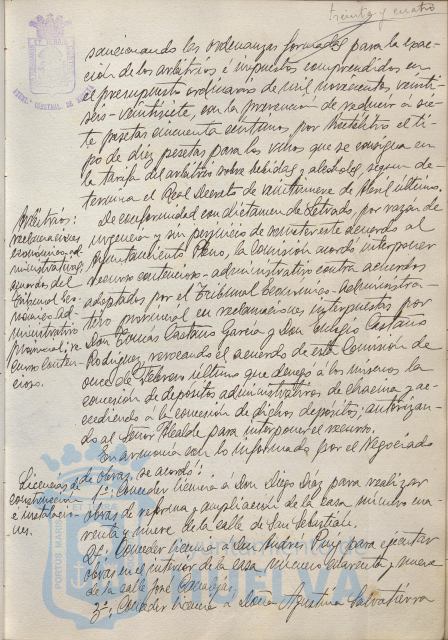 treinta y cuatro
sancionando las ordenanzas formadas para la exac-
ción de los arbitrios é impuestos comprendidos en
el presupuesto ordinario de mil novecientos veinti-
seis-veintisiete, con la prevención de reducir á sie-
te pesetas cincuenta céntimos por hectólitro el ti-
po de diez pesetas para los vinos que se consigna en
la tarifa del arbitrio sobre bebidas y alcoholes, segun de-
termina el Real Decreto de veintinueve de Abril último.
Arbitrios:
reclamaciones
económico-ad-
ministrativas,
acuerdo del
Tribunal Eco-
nómico Ad-
ministrativo
provincial; re-
curso conten-
cioso.
De conformidad con dictamen de Letrado, por razón de
urgencia y sin perjuicio de someter este acuerdo al
Ayuntamiento Pleno, la Comisión acordó interponer
recurso contencioso-administrativo contra acuerdos
adoptados por el Tribunal Económico-Administra-
tivo provincial en reclamaciones interpuestas por
Don Tomás Castaño García y Don Castaño
Rodríguez, revocando el acuerdo de esta Comisión de
once de Febrero último que denegó á los mismos la
concesión de depósitos administrativos de chacina y ac-
cediendo á la concesión de dichos depósitos; autorizan-
do al Señor Alcalde para interponer el recurso.
Licencias de
construcción
e instalacio-
nes.
En armonía con lo informado por el Negociado
de Obras, se acordó:
1º: Conceder licencia á Don Diego Díaz para realizar
obras de reforma y ampliación de la casa número cua-
renta y nueve de la calle de San Sebastián.
2º: Conceder licencia á Don Andrés para ejecutar
obras en el interior de la casa número cuarenta y nueve
de la calle José Canalejas.
3º: Conceder licencia á Doña Agustina Salvatierra
HUELVA